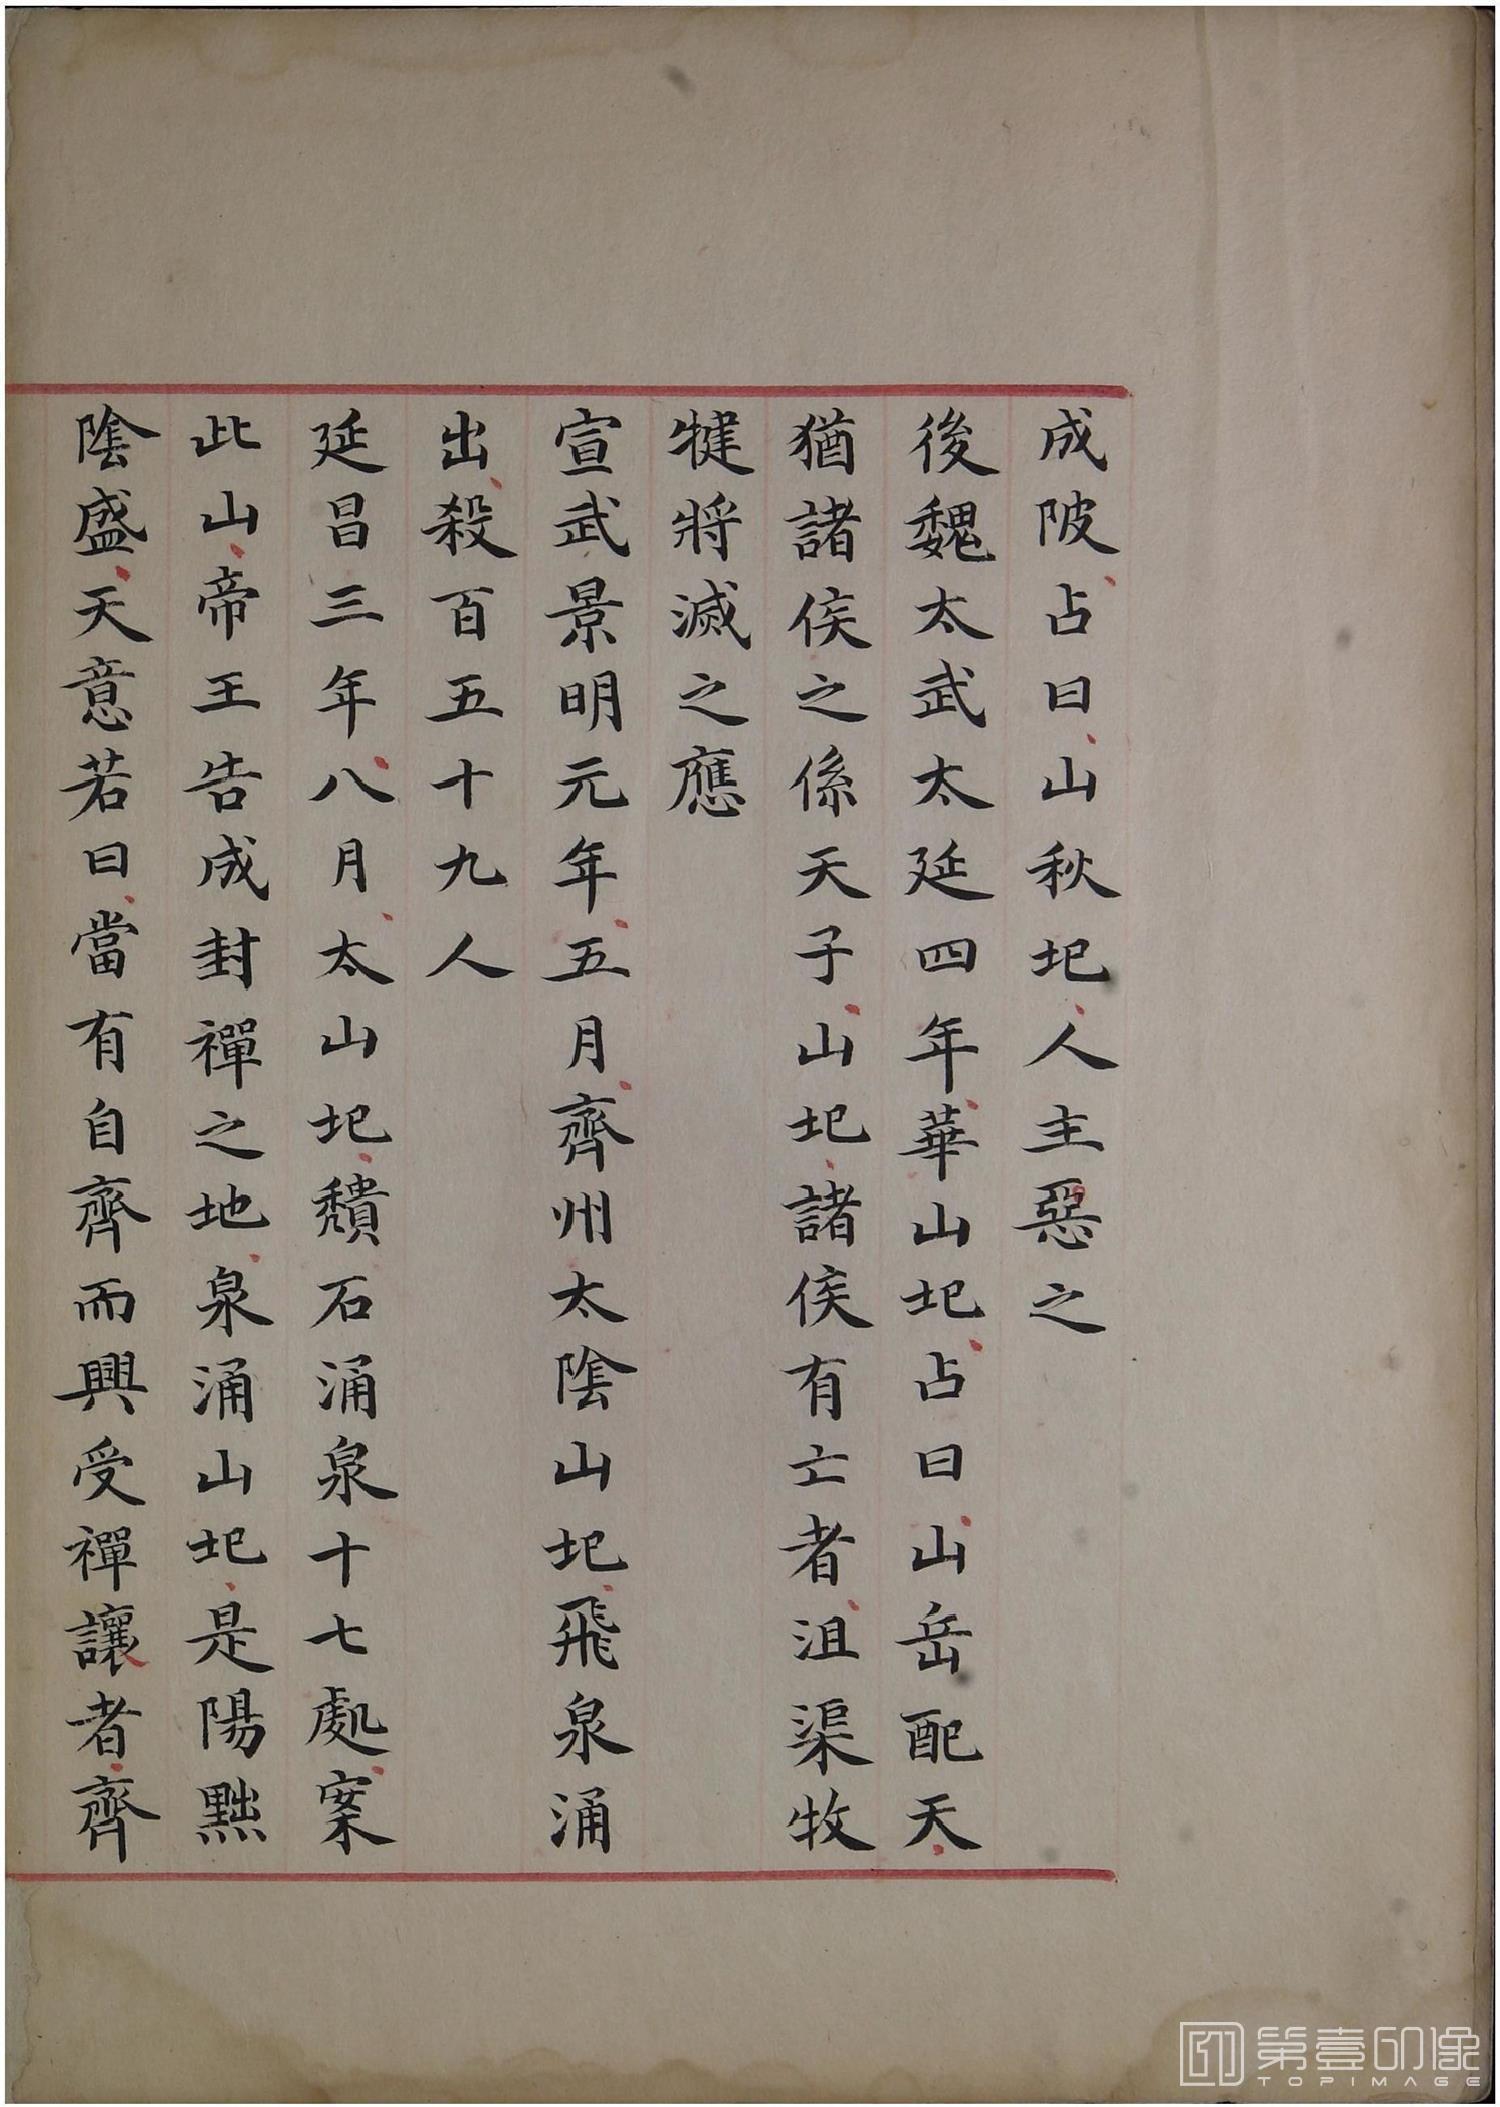 成陂占曰山秋圯人主惡之
後魏太武太延四年華山圯占曰山岳配天
猶諸侯之係天子山圯諸侯有亡者沮渠牧
犍將滅之應
宣武景明元年五月齊州太陰山圯飛泉涌
出殺百五十九人
延昌三年八月太山圯頹石涌泉十七處案
此山帝王告成封禪之地泉涌山圯是陽黜
陰盛天意若曰當有自齊而興受禪讓者齊
第壹印像
TOPIMAGE